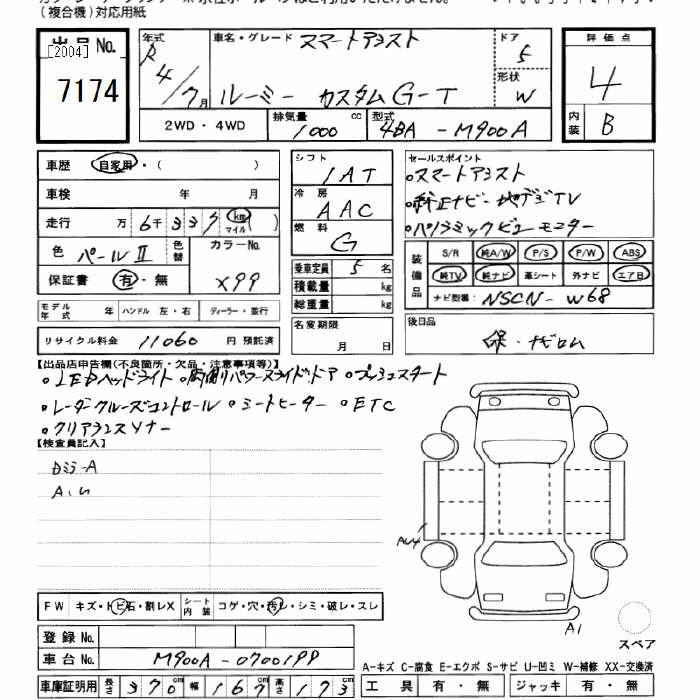 (複合機)対応用紙
出品 No.
[2004]
7174
年式 R 4/7月
車名・グレード スマートアシスト
ルーミー カスタムG-T
ドア 5
形状 W
評価点 4
内装 B
2WD・4WD
排気量 1000 cc
型式 4BA-M900A
車歴 自家用・( )
車検 年 月
走行 万 6千 3 3 7 (km マイル)
色 パールⅡ 色替
カラーNo. X99
保証書 有・無
モデル年式 年 ハンドル 左・右 ディーラー・並行
リサイクル料金 11060 円 預託済
シフト IAT
冷房 AAC
燃料 G
乗車定員 5 名
積載量 kg
総重量 kg
名変期限 月 日
セールスポイント
・スマートアシスト
・純正ナビ・地デジTV
・パノラミックビューモニター
装備品 S/R 純A/W P/S P/W ABS
純TV 純ナビ 革シート 外ナビ エアB
ナビ型番: NSCN-W68
後日品
保・ナビロム
【出品店申告欄(不良箇所・欠品・注意事項等)】
・LEDヘッドライト ・両側パワースライドドア ・プッシュスタート
・レーダークルーズコントロール ・シートヒーター ・ETC
・クリアランスソナー
【検査員記入】
カミラ-A
A.U
FW キズ・トビ石・割レX シート内装 コゲ・穴・汚レ・シミ・破レ・スレ
登録 No.
車台 No. M900A-0700198
車庫証明用 長さ 370cm 幅 167cm 高さ 173cm
AU4
A1
スペア
A-キズ C-腐食 E-エクボ S-サビ U-凹ミ W-補修 XX-交換済
工具 有・無 ジャッキ 有・無